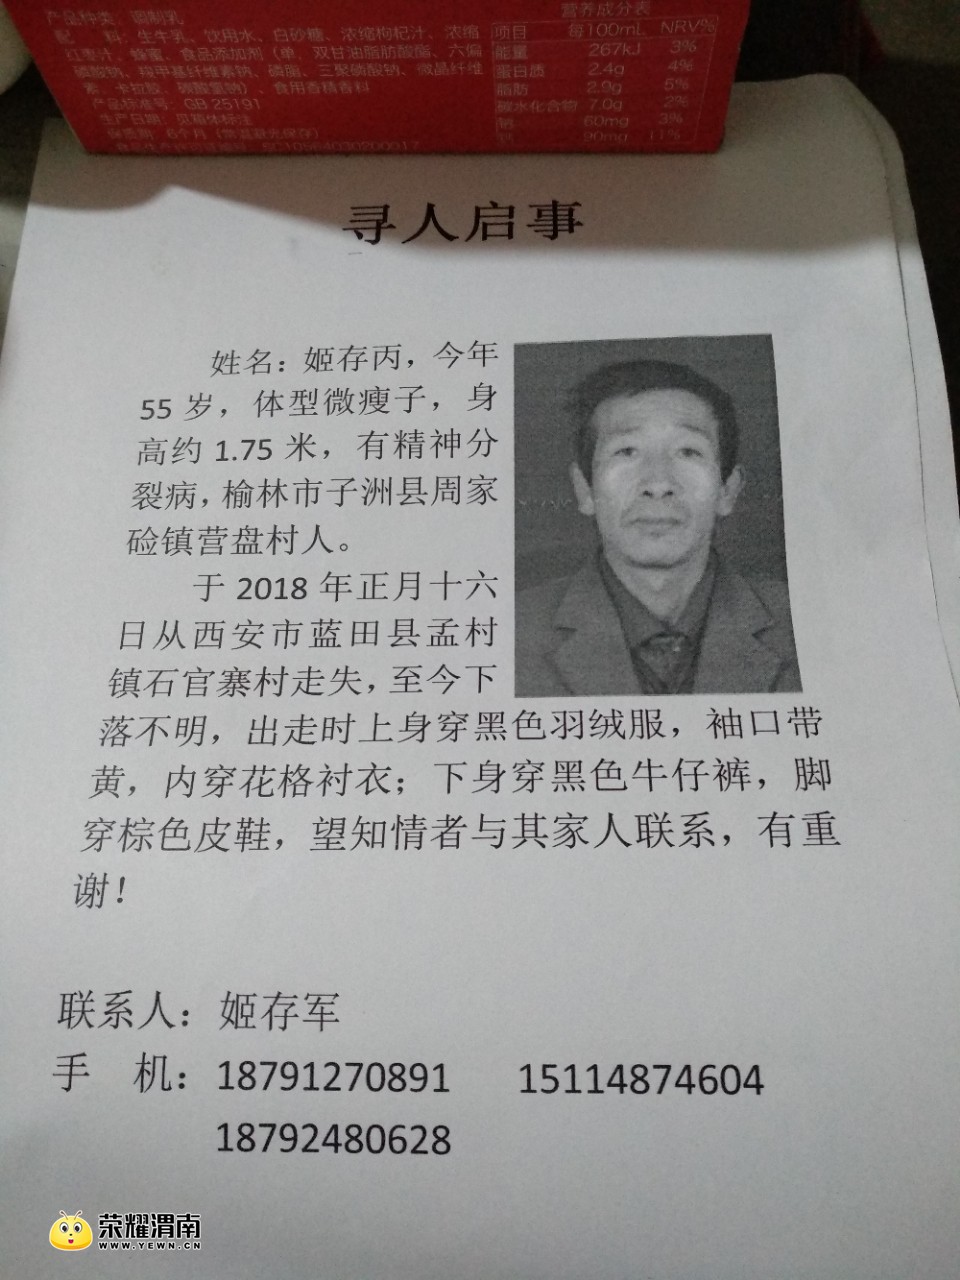 产品种类：调制乳
配 料：生牛乳、饮用水、白砂糖、浓缩枸杞汁、浓缩
红枣汁、蜂蜜、食品添加剂（单，双甘油脂肪酸酯、六偏
磷酸钠、羧甲基纤维素钠、磷脂、三聚磷酸钠、微晶纤维
素、卡拉胶、碳酸氢钠）、食用香精香料
产品标准号：GB 25191
生产日期：见箱体标注
保质期：6个月（常温避光保存）
食品生产许可证编号：SC10564030200017
营养成分表
项目 每100mL NRV%
能量 267kJ 3%
蛋白质 2.4g 4%
脂肪 2.9g 5%
碳水化合物 7.0g 2%
钠 60mg 3%
钙 90mg 11%
寻人启事
姓名：姬存丙，今年
55 岁，体型微瘦子，身
高约 1.75 米，有精神分
裂病，榆林市子洲县周家
硷镇营盘村人。
于 2018 年正月十六
日从西安市蓝田县孟村
镇石官寨村走失，至今下
落不明，出走时上身穿黑色羽绒服，袖口带
黄，内穿花格衬衣；下身穿黑色牛仔裤，脚
穿棕色皮鞋，望知情者与其家人联系，有重
谢！
联系人：姬存军
手 机：18791270891 15114874604
18792480628
荣耀渭南
WWW.YEWN.CN